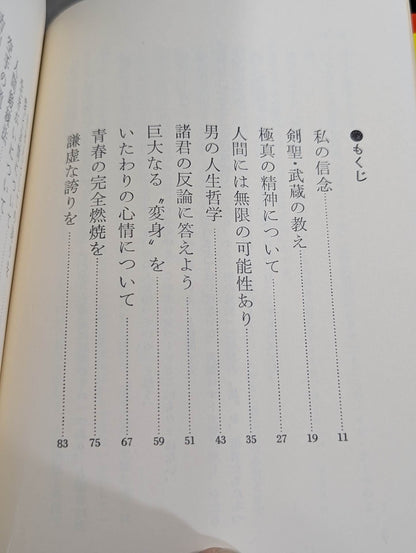 ●もくじ
私の信念 11
剣聖・武蔵の教え 19
極真の精神について 27
人間には無限の可能性あり 35
男の人生哲学 43
諸君の反論に答えよう 51
巨大なる〝変身〟を 59
いたわりの心情について 67
青春の完全燃焼を 75
謙虚な誇りを 83